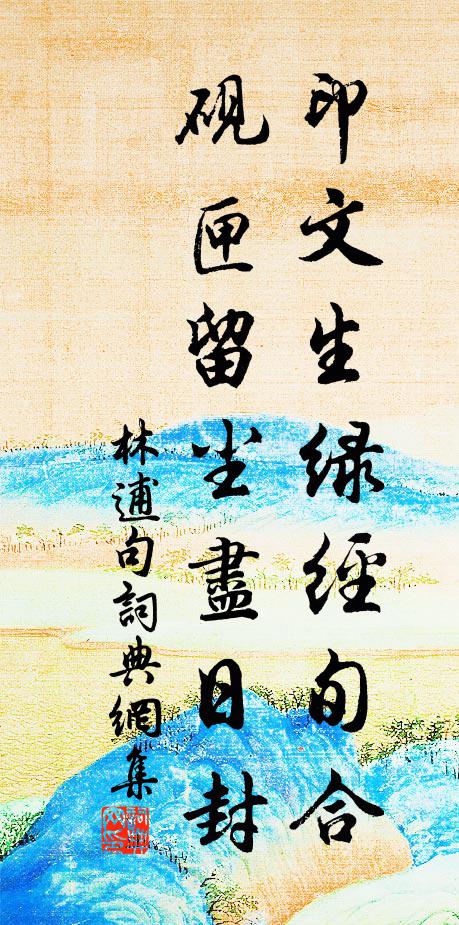 印文生绿經旬合
硯匣留尘盡日封
林逋句詞典網集